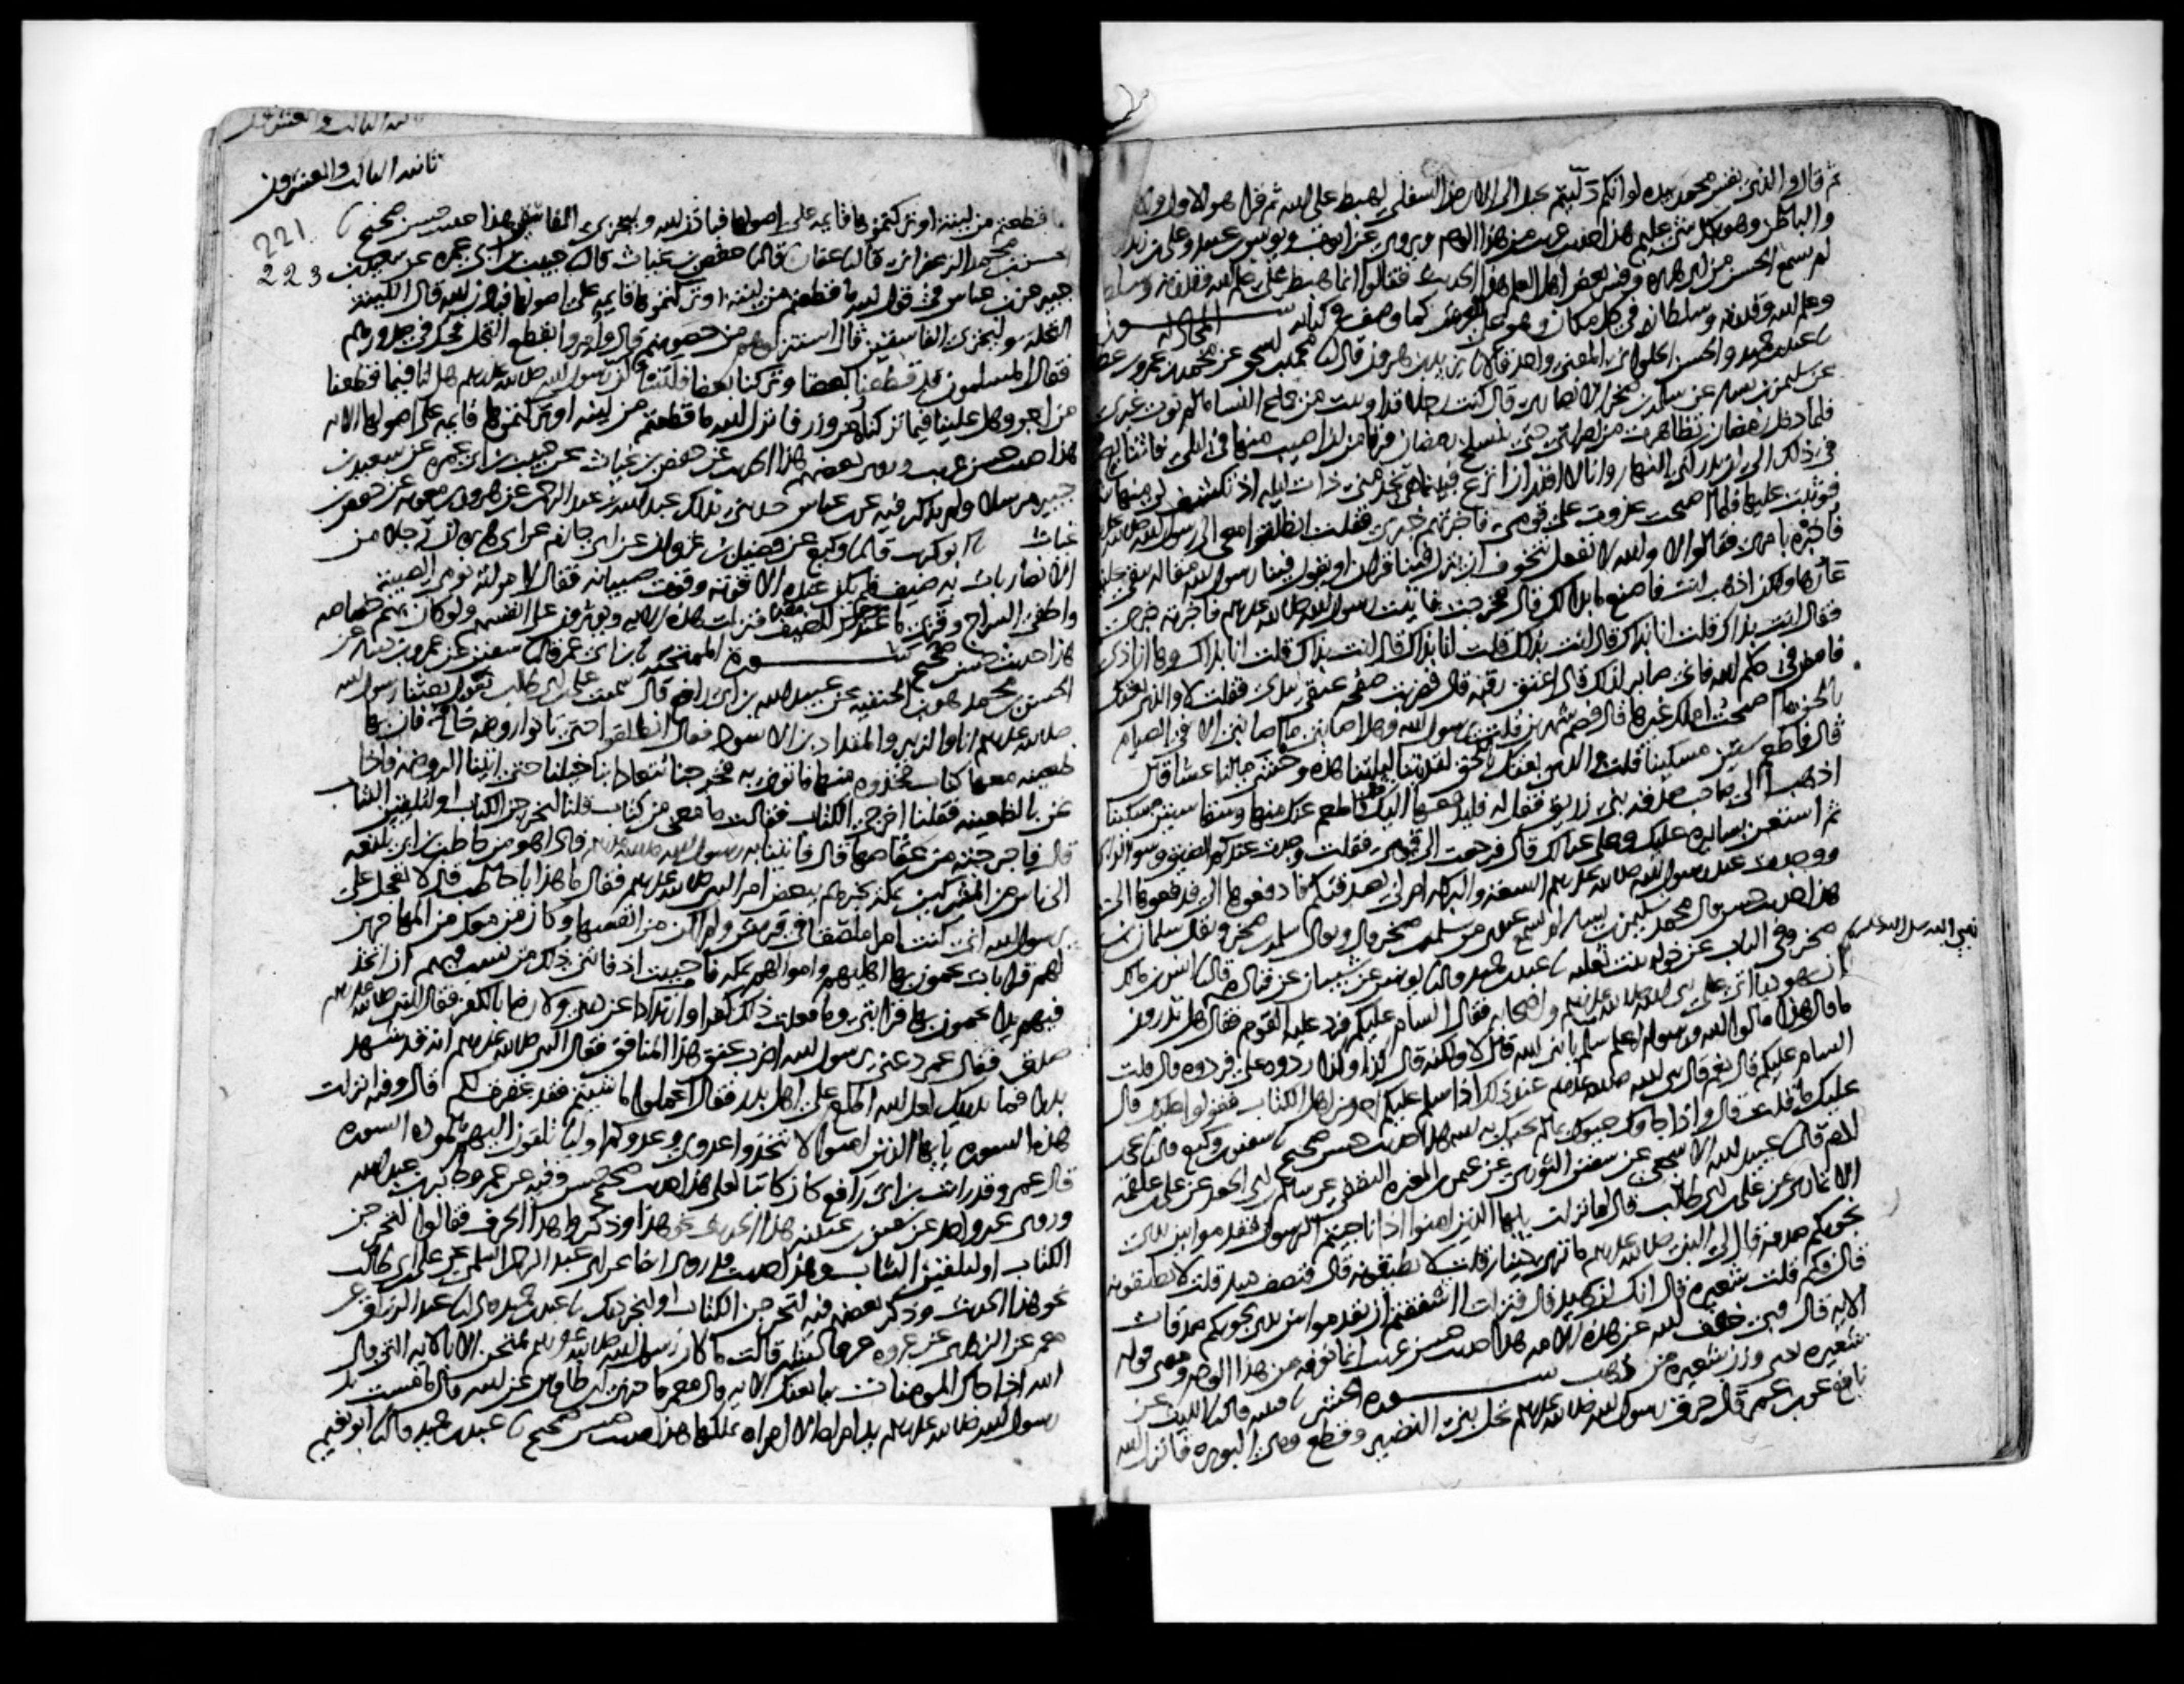 ثم قال والذي نفس محمد بيده لو انكم دليتم بحبل الى الارض السفلى لهبط على الله ثم قرا هو الاول والاخر
والباطن وهو بكل شي عليم هذا حديث غريب من هذا الوجه ويروى عن ايوب ويونس بن عبيد وعلي بن زيد
لم يسمع الحسن من ابي هريره وفسر بعض اهل العلم هذا الحديث فقالوا انما هبط على علم الله وقدرته وسلطانه
وعلم الله وقدرته وسلطانه في كل مكان وهو على العرش كما وصف في كتابه سورة المجادلة
عبد بن حميد والحسن الحلواني المعنى واحد قالا يزيد بن هرون قال محمد بن اسحق عن محمد بن عمرو بن عطا
عن سليمن بن يسار عن سلمة بن صخر الانصاري قال كنت رجلا قد اوتيت من جماع النسا ما لم يوت غيري
فلما دخل رمضان تظاهرت من امراتي حتى ينسلخ رمضان فرقا من ان اصيب منها في الليل فاتتابع
في ذلك الى ان يدركني النهار وانا لا اقدر ان انزع فبينما هي تخدمني ذات ليله اذ تكشف لي منها شي
فوثبت عليها فلما اصبحت غدوت على قومي فاخبرتهم خبري فقلت انطلقوا معي الى رسول الله صلى الله عليه
فاخبره بامري فقالوا لا والله لا نفعل نتخوف ان ينزل فينا قران او يقول فينا رسول الله مقاله يبقى علينا
عارها ولكن اذهب انت فاصنع ما بدا لك قال فخرجت فاتيت رسول الله صلى الله عليه وسلم فاخبرته خبري
فقال انت بذاك قلت انا بذاك قال انت بذاك قلت انا بذاك قال انت بذاك قلت انا بذاك وها انا ذي
فامض في حكم الله فاني صابر لذلك قال اعتق رقبه قال فضربت صفحه عنقي بيدي فقلت لا والذي بعثك
بالحق ما اصبحت املك غيرها قال فصم شهرين قلت يا رسول الله وهل اصابني ما اصابني الا في الصيام
قال فاطعم ستين مسكينا قلت والذي بعثك بالحق لقد بتنا ليلتنا هذه وحشى ما لنا عشا قال
اذهب الى صاحب صدقه بني زريق فقل له فليدفعها اليك فاطعم عنك منها وسقا ستين مسكينا
ثم استعن بسايره عليك وعلى عيالك قال فرجعت الى قومي فقلت وجدت عندكم الضيق وسو الراي
ووجدت عند رسول الله صلى الله عليه وسلم السعه والبركه امر لي بصدقتكم فادفعوها الي فدفعوها الي
هذا حديث حسن قال محمد سليمن بن يسار لم يسمع عندي من سلمة بن صخر قال ويقال سلمة بن صخر ويقال سلمان بن
صخر وفي الباب عن خوله بنت ثعلبه عبد بن حميد قال يونس عن شيبان عن قتاده قال انس بن مالك
نبي الله صلى الله عليه وسلم
ان يهوديا اتى على نبي الله صلى الله عليه وسلم واصحابه فقال السام عليكم فرد عليه القوم فقال هل تدرون
ما قال هذا قالوا الله ورسوله اعلم سلم يا نبي الله قال لا ولكنه قال كذا وكذا ردوه علي فردوه قال قلت
السام عليكم قال نعم قال نبي الله صلى الله عليه وسلم عند ذلك اذا سلم عليكم احد من اهل الكتاب فقولوا عليك قال
عليك ما قلت قال واذا جاوك حيوك بما لم يحيك به الله هذا حديث حسن صحيح سفين بن وكيع قال يحيى
ادم قال عبيد الله الاشجعي عن سفين الثوري عن عثمن بن المغيره الثقفي عن سالم بن ابي الجعد عن علي بن علقمه
الانماري عن علي بن ابي طالب قال لما نزلت يايها الذين امنوا اذا ناجيتم الرسول فقدموا بين يدي
نجويكم صدقه قال لي النبي صلى الله عليه وسلم ما ترى دينار قلت لا يطيقونه قال فنصف دينار قلت لا يطيقونه
قال فكم قلت شعيره قال انك لزهيد قال فنزلت ااشفقتم ان تقدموا بين يدي نجويكم صدقات
الايه قال فبي خفف الله عن هذه الامه هذا حديث حسن غريب انما نعرفه من هذا الوجه ومعنى قوله
شعيره يعني وزن شعيره من ذهب سورة الحشر قتيبه قال الليث عن
نافع عن بن عمر قال حرق رسول الله صلى الله عليه وسلم نخل بني النضير وقطع وهي البويره فانزل الله
ثانيه الثالث والعشرون
221
223
ما قطعتم من لينه او تركتموها قايمه على اصولها فباذن الله وليخزي الفاسقين هذا حديث حسن صحيح
الحسن بن محمد الزعفراني قال عفان قال حفص بن غياث قال حبيب بن ابي عمره عن سعيد بن
جبير عن بن عباس في قول الله ما قطعتم من لينه او تركتموها قايمه على اصولها فباذن الله قال اللينه
النخله وليخزي الفاسقين قال استنزلوهم من حصونهم قال وامروا بقطع النخل فحك في صدورهم
فقال المسلمون قد قطعنا بعضا وتركنا بعضا فلنسالن رسول الله صلى الله عليه وسلم هل لنا فيما قطعنا
من اجر وهل علينا فيما تركنا من وزر فانزل الله ما قطعتم من لينه او تركتموها قايمه على اصولها الايه
هذا حديث حسن غريب وروى بعضهم هذا الحديث عن حفص بن غياث عن حبيب بن ابي عمره عن سعيد بن
جبير مرسلا ولم يذكر فيه عن بن عباس حدثني بذلك عبد الله بن عبد الرحمن عن هرون بن معويه عن حفص بن
غياث ابو كريب قال وكيع عن فضيل بن غزوان عن ابي حازم عن ابي هريره ان رجلا من
الانصار بات به ضيف فلم يكن عنده الا قوته وقوت صبيانه فقال لامراته نومي الصبيه
واطفئ السراج وقربي للضيف ما عندك فنزلت هذه الايه ويوثرون على انفسهم ولو كان بهم خصاصه
هذا حديث حسن صحيح سورة الممتحنة بن ابي عمر قال سفين عن عمرو بن دينار عن
الحسن بن محمد هو بن الحنفيه عن عبيد الله بن ابي رافع قال سمعت علي بن ابي طالب يقول بعثنا رسول الله
صلى الله عليه وسلم انا والزبير والمقداد بن الاسود فقال انطلقوا حتى تاتوا روضه خاخ فان بها
ظعينه معها كتاب فخذوه منها فاتوني به فخرجنا تتعادى بنا خيلنا حتى اتينا الروضه فاذا
نحن بالظعينه فقلنا اخرجي الكتاب فقالت ما معي من كتاب قلنا لتخرجن الكتاب او لتلقين الثياب
قال فاخرجته من عقاصها قال فاتينا به رسول الله صلى الله عليه وسلم فاذا هو من حاطب بن ابي بلتعه
الى ناس من المشركين بمكه يخبرهم ببعض امر النبي صلى الله عليه وسلم فقال ما هذا يا حاطب قال لا تعجل علي
يا رسول الله اني كنت امرا ملصقا في قريش ولم اكن من انفسها وكان من معك من المهاجرين
لهم قرابات يحمون بها اهليهم واموالهم بمكه فاحببت اذ فاتني ذلك من نسب فيهم ان اتخذ
فيهم يدا يحمون بها قرابتي وما فعلت ذلك كفرا وارتدادا عن ديني ولا رضا بالكفر فقال النبي صلى الله عليه وسلم
صدق فقال عمر دعني يا رسول الله اضرب عنق هذا المنافق فقال النبي صلى الله عليه وسلم انه قد شهد
بدرا فما يدريك لعل الله اطلع على اهل بدر فقال اعملوا ما شيتم فقد غفرت لكم قال وفيه انزلت
هذه السوره يايها الذين امنوا لا تتخذوا عدوي وعدوكم اوليا تلقون اليهم بالموده السوره
قال عمرو وقد رايت بن ابي رافع كان كاتبا لعلي هذا حديث حسن صحيح وفيه عن عمر وجابر بن عبد الله
وروى غير واحد عن سفين بن عيينه هذا الحديث نحو هذا وذكروا هذا الحرف فقالوا لتخرجن
الكتاب او لتلقين الثياب وهذا حديث قد روي ايضا عن ابي عبد الرحمن السلمي عن علي بن ابي طالب
نحو هذا الحديث وذكر بعضهم فيه لتخرجن الكتاب او لنجردنك عبد بن حميد قال عبد الرزاق عن
معمر عن الزهري عن عروه عن عايشه قالت ما كان رسول الله صلى الله عليه وسلم يمتحن الا بالايه التي قال
الله اذا جاك المومنات يبايعنك الايه قال معمر فاخبرني بن طاوس عن ابيه قال ما مست يد
رسول الله صلى الله عليه وسلم يد امراه الا امراه يملكها هذا حديث حسن صحيح عبد بن حميد قال ابو نعيم